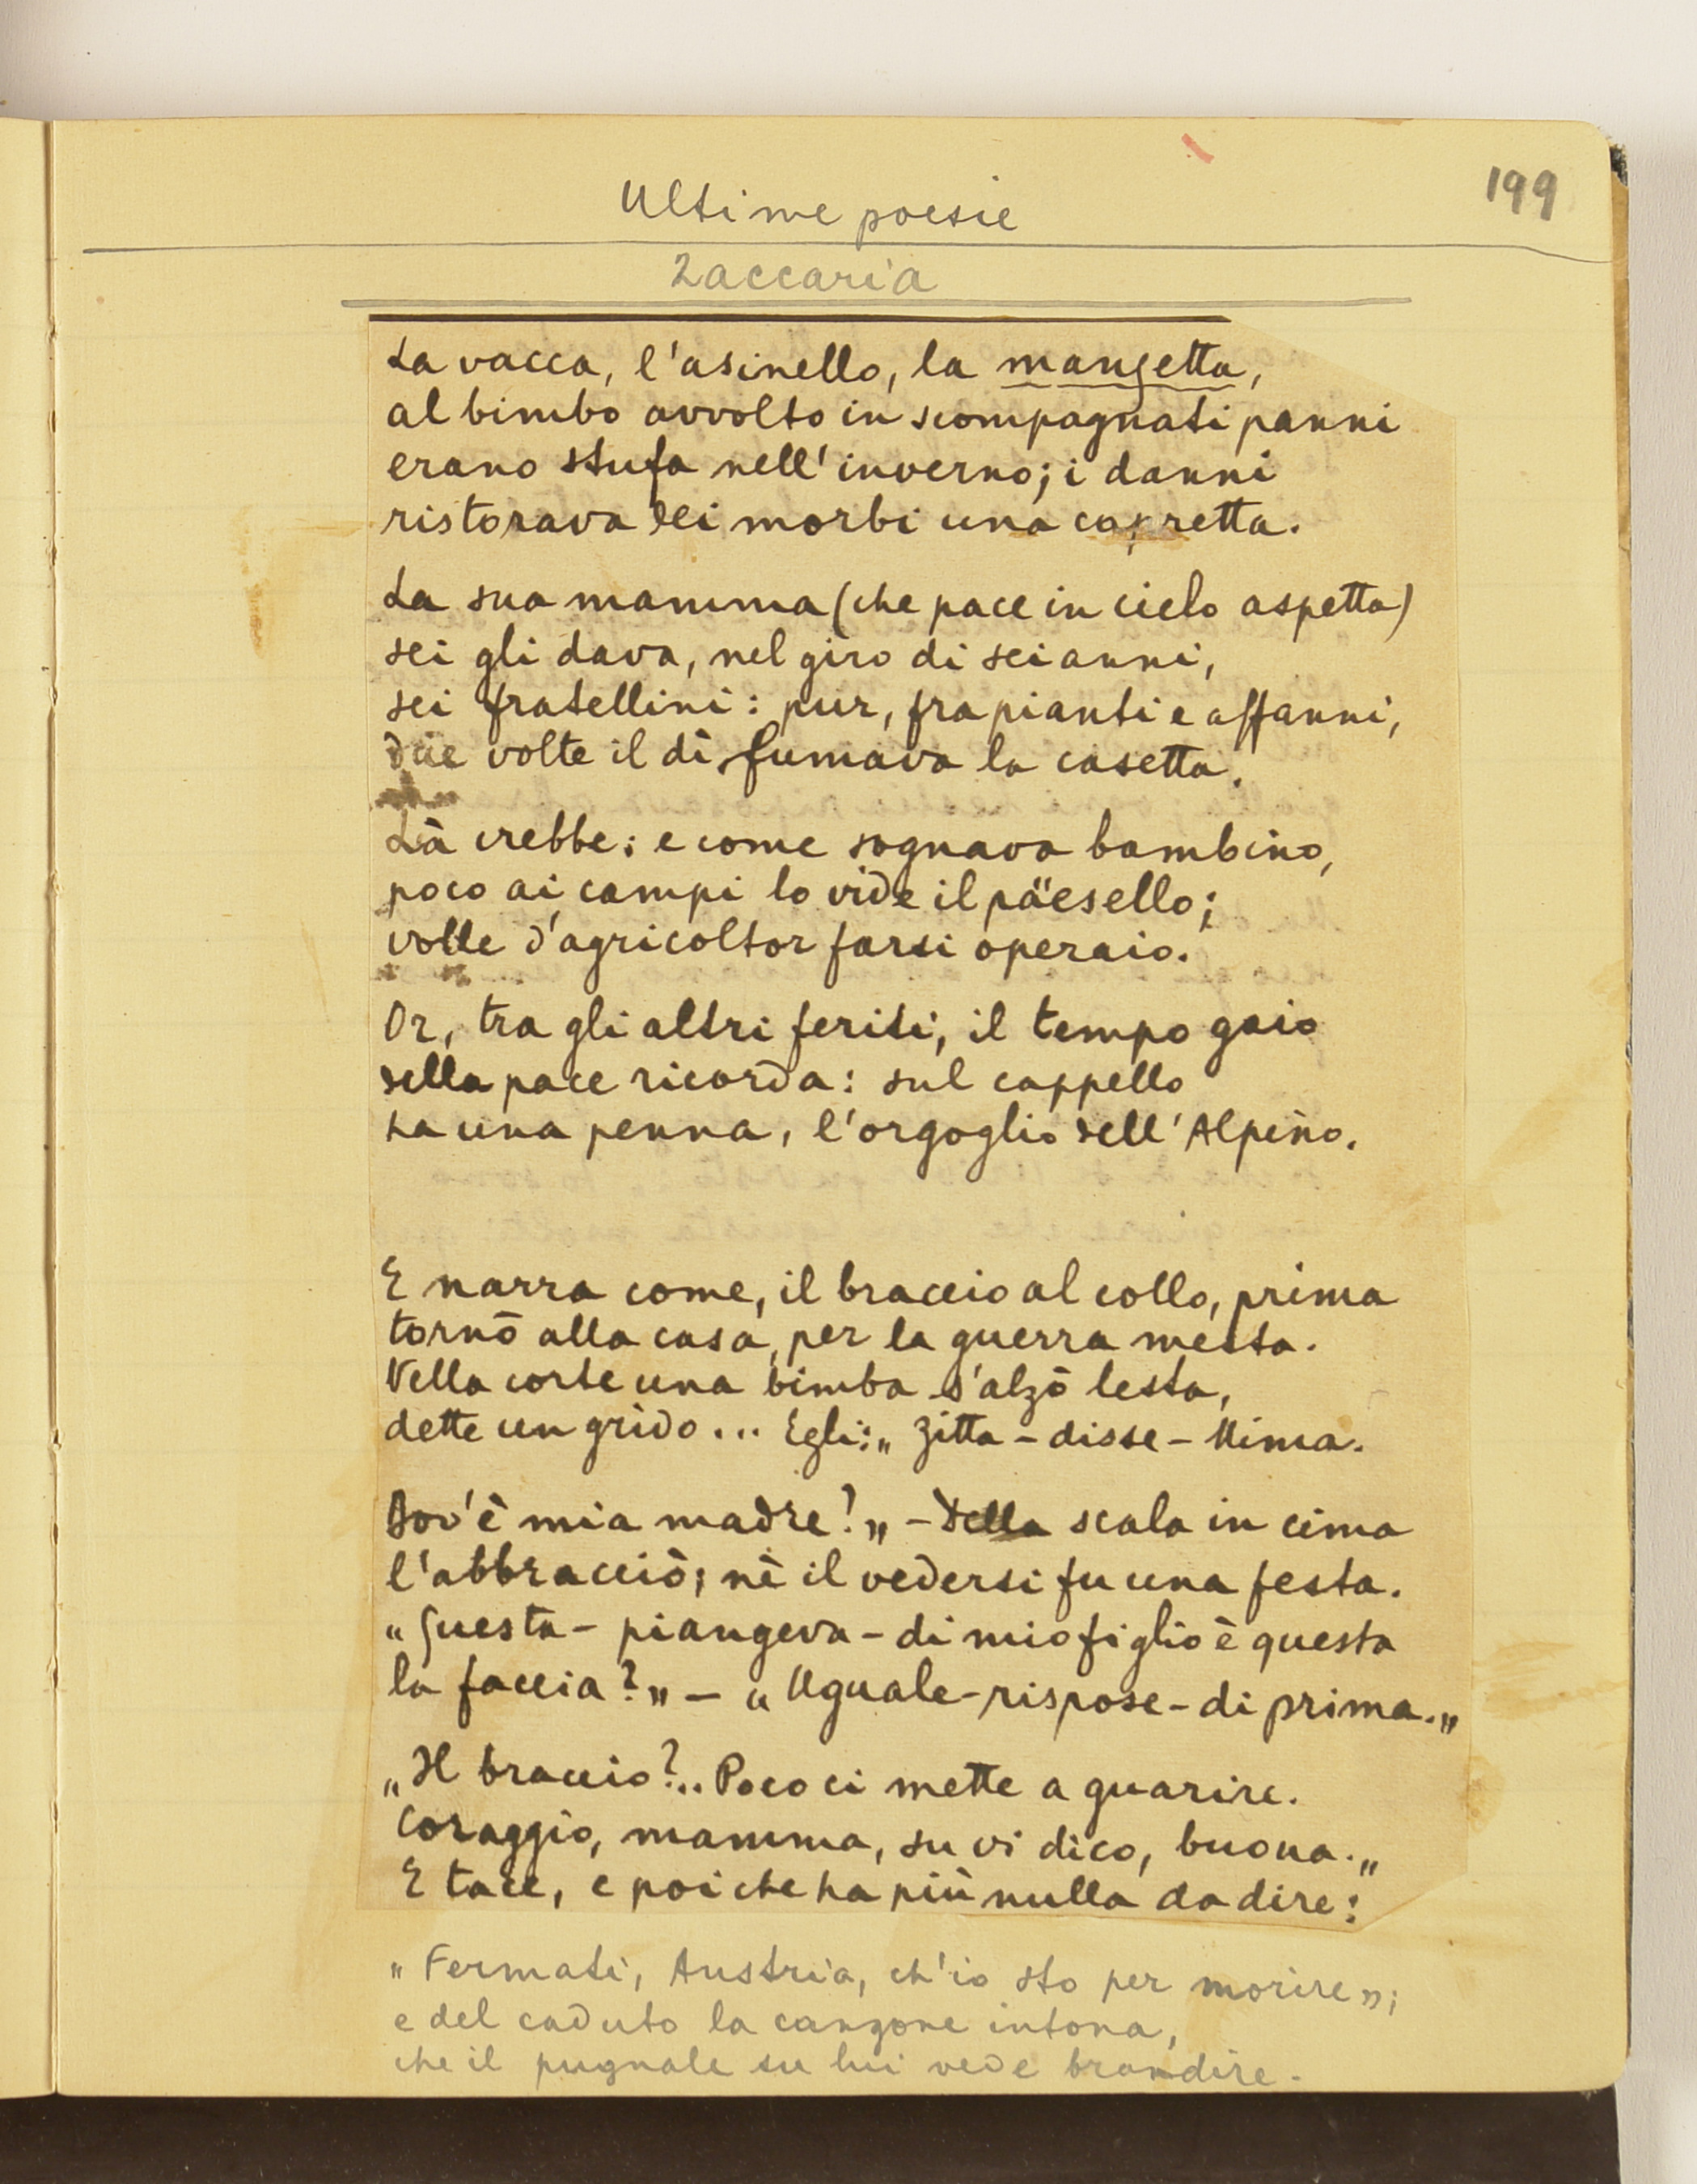 199
Ultime poesie
Zaccaria
La vacca, l'asinello, la mangetta,
al bimbo avvolto in scompagnati panni
erano stufa nell'inverno; i danni
ristorava dei morbi una capretta.
La sua mamma (che pace in cielo aspetta)
sei gli dava, nel giro di sei anni,
sei fratellini: pur, fra pianti e affanni,
due volte il dì fumava la casetta.
Là crebbe; e come sognava bambino,
poco ai campi lo vide il päesello;
volle d'agricoltor farsi operaio.
Or, tra gli altri feriti, il tempo gaio
della pace ricorda: sul cappello
ha una penna, l'orgoglio dell'Alpino.
E narra come, il braccio al collo, prima
tornò alla casa, per la guerra mesta.
Nella corte una bimba s'alzò lesta,
dette un grido... Egli: „ Zitta - disse - Mima.
Dov'è mia madre?„ - Della scala in cima
l'abbracciò; nè il vedersi fu una festa.
„ Questa - piangeva - di mio figlio è questa
la faccia?„ - „ Uguale - rispose - di prima.„
„ Il braccio?.. Poco ci mette a guarire.
Coraggio, mamma, su vi dico, buona.„
E tace, e poi che ha più nulla da dire:
„ Fermati, Austria, ch'io sto per morire„;
e del caduto la canzone intona,
che il pugnale su lui vede brandire.